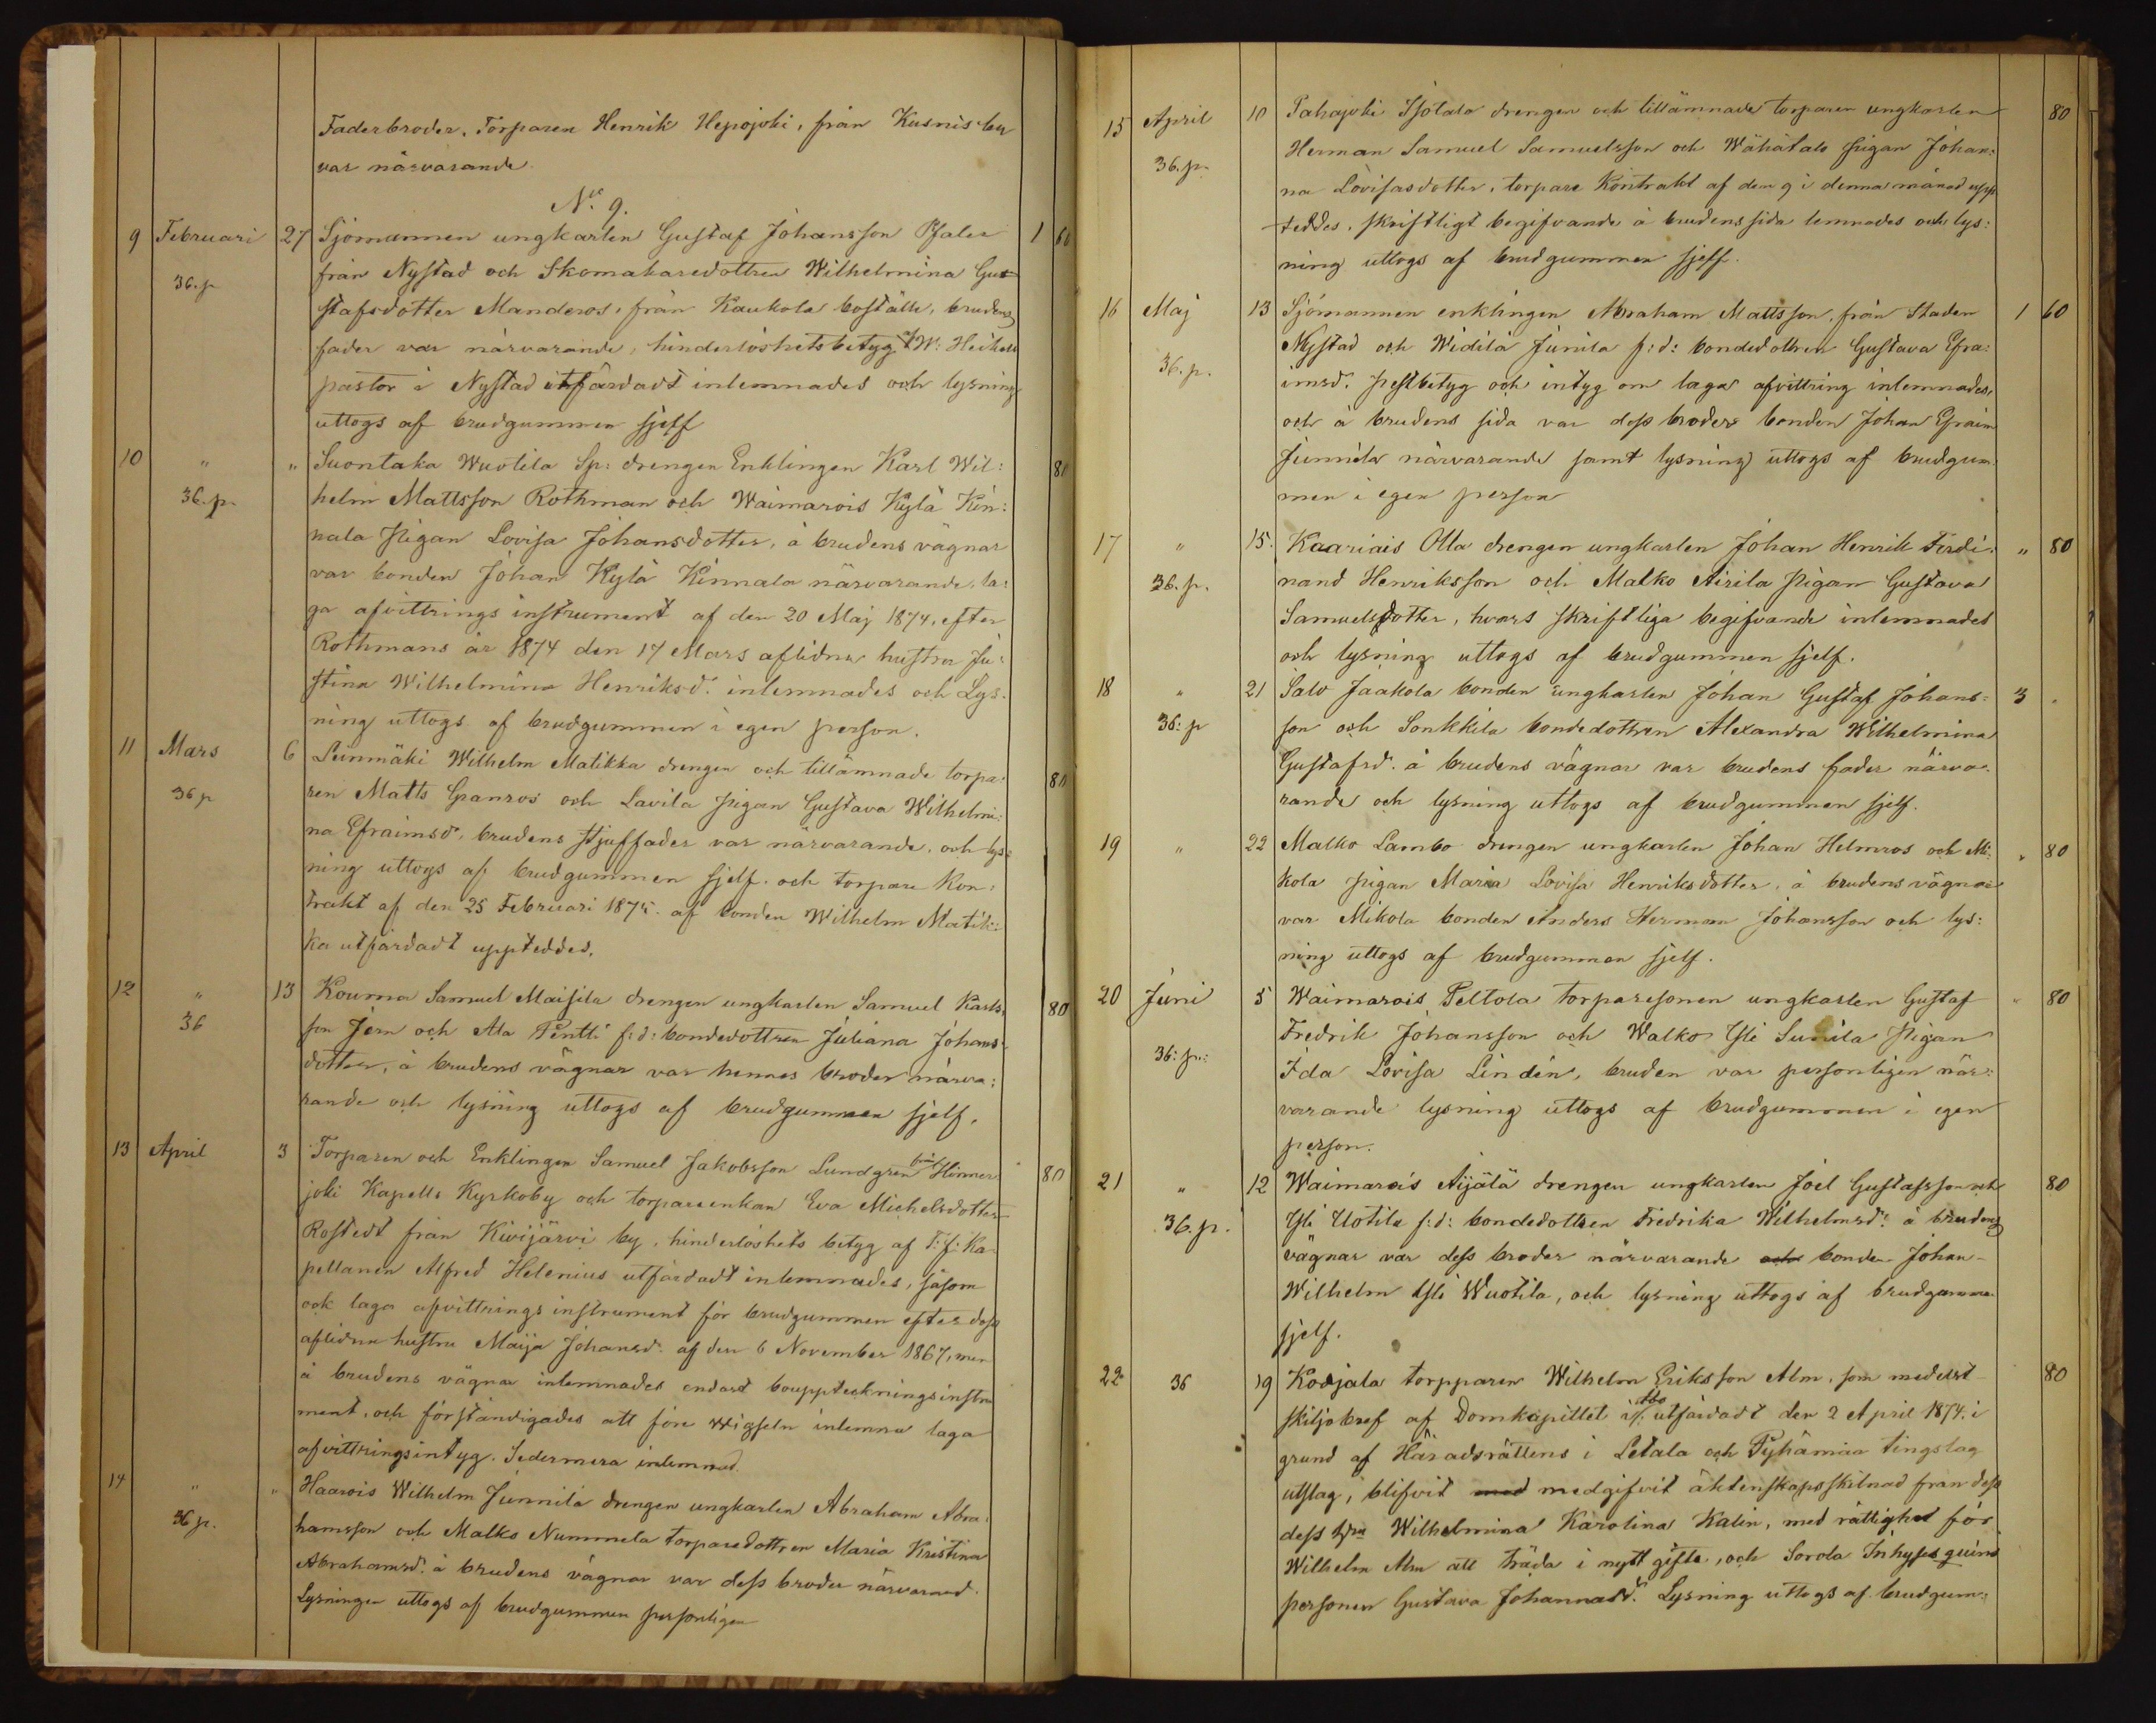 Faderbroder, Torparen Henrik Hepojoki, från Kusnis by
var närvarande.
No. 9.
9 Februari 27 Sjömannen ungkarlen Gustaf Johansson Psaler 1 60
36. p från Nystad och Skomakaredottren Wilhelmina Gu-
stafsdotter Manderos, från Kaukola boställe, brudens
fader var närvarande, hinderlöshetsbetyg af W:
pastor i Nystad utfärdadt inlemnades och lysning
uttogs af brudgummen sjelf
10 " " Suontaka Wuotila Sp: drengen Enklingen Karl Wil: 80
36. p. helm Mattsson Rothman och Waimarois Kylä Kin:
nala pigan Lovisa Johansdotter, å brudens vägnar
var bonden Johan Kylä Kinnala närvarande, la:
ga afvittrings instrument af den 20 Maj 1874, efter
Rothmans år 1874 den 14 Mars aflidna hustru Ju:
stina Wilhelmina Henriksd. inlemnades och Lys:
ning uttogs af brudgummen i egen person.
11 Mars 6 Leinmäki Wilhelm Matikka drengen och tillämnade torpa: 80
36 p ren Matts Granros och Lavila pigan Gustava Wilhelmi:
na Efraimsd. brudens stjuffader var närvarande, och lys:
ning uttogs af brudgummen sjelf. och torpare Kon:
trakt af den 25 Februari 1875. af bonden Wilhelm Matik:
ka utfärdadt uppteddes.
12 " 13 Kouma Samuel Maisila drengen ungkarlen Samuel Karls: 80
36 son Jern och Ala Pentti f: d: bondedottren Juliana Johans:
dotter, å brudens vägnar var hennes broder närva:
rande och lysning uttogs af brudgummen sjelf.
13 April 3 Torparen och Enklingen Samuel Jakobsson Lundgren från Hinner 80
joki Kapells Kyrkoby och torpareenkan Eva Michelsdotter
Rostedt från Kivijärvi by, hinderlöshets betyg af T: f: Ka-
pellanen Alfred Helenius utfärdadt inlemnades, såsom
ock laga afvittrings instrument för brudgummen efter dess
aflidna hustru Maija Johansd. af den 6 November 1867, men
å brudens vägnar inlemnades endast bouppteckningsinstru
ment, och förständigades att före wigseln inlemna laga
afvittringsintyg. Sedermera inlemnad.
14 " " Haarois Wilhelm Junnila drengen ungkarlen Abraham Abra:
36 p. hamsson och Malko Nummela torparedottren Maria Kristina
Abrahamsd. å brudens vägnar var dess broder närvarand.
Lysningen uttogs af brudgummen personligen
15 April 10 Pahajoki Isotalo drengen och tillämnade torparen ungkarlen 80
36. p. Herman Samuel Samuelsson och Wähätalo pigan Johan:
na Lovisasdotter, torpare Kontrakt af den 9 i denna månad upp
teddes, skriftligt begifvande å brudens sida lemnades och lys:
ning uttogs af brudgummen sjelf.
16 Maj 13 Sjömannen enklingen Abraham Mattsson, från Staden 1 60
36. p. Nystad och Widilä Junila f: d: bondedottren Gustava Efra:
imsd. pestbetyg och intyg om laga afvittring inlemnades,
och å brudens sida var dess broder bonden Johan Efraim
Junnila närvarande samt lysning uttogs af brudgum
men i egen person
17 " 15. Kaariais Olla drengen ungkarlen Johan Henrik Ferdi: " 80
36. p. nand Henriksson och Malko Airila pigan Gustava
Samuelsdotter, hvars skriftliga begifvande inlemnades
och lysning uttogs af brudgummen sjelf.
18 " 21 Salo Jaakola bonden ungkarlen Johan Gustaf Johans: 3
36: p son och Sonkkila bondedottren Alexandra Wilhelmina
Gustafsd. å brudens vägnar var brudens fader närva:
rande och lysning uttogs af brudgummen sjelf.
19 " 22 Malko Lambo drengen ungkarlen Johan Helmros och Mi: " 80
kola pigan Maria Lovisa Henriksdotter, å brudens vägnar
var Mikola bonden Anders Herman Johansson och lys:
ning uttogs af brudgummen sjelf.
20 Juni 5 Waimarois Peltola torparesonen ungkarlen Gustaf " 80
36: p: Fredrik Johansson och Walko Yli Sunila pigan
Ida Lovisa Lindén, bruden var personligen när:
varande lysning uttogs af brudgummen i egen
person.
21 " 12 Waimarois Äijälä drengen ungkarlen Joel Gustafsson och 80
36. p. Yli Uotila f: d: bondedottren Fredrika Wilhelmsd. å brudens
vägnar var dess broder närvarande och bonden Johan
Wilhelm Yli Wuotila, och lysning uttogs af brudgumme
sjelf.
22 36 19 Kodjala torpparen Wilhelm Eriksson Alm, som medelst 80
skiljobref af Domkapitlet i Åbo utfärdadt den 2 April 1874. i
grund af Häradsrättens i Letala och Pyhämaa tingslag
utslag, blifvit med medgifvit äktenskapsskilnad från dess
dess hru Wilhelmina Karolina Kalen, med rättighet för
Wilhelm Alm att träda i nytt gifte, och Sorola Inhyses quins
personen Gustava Johannasd. Lysning uttogs af brudgum: